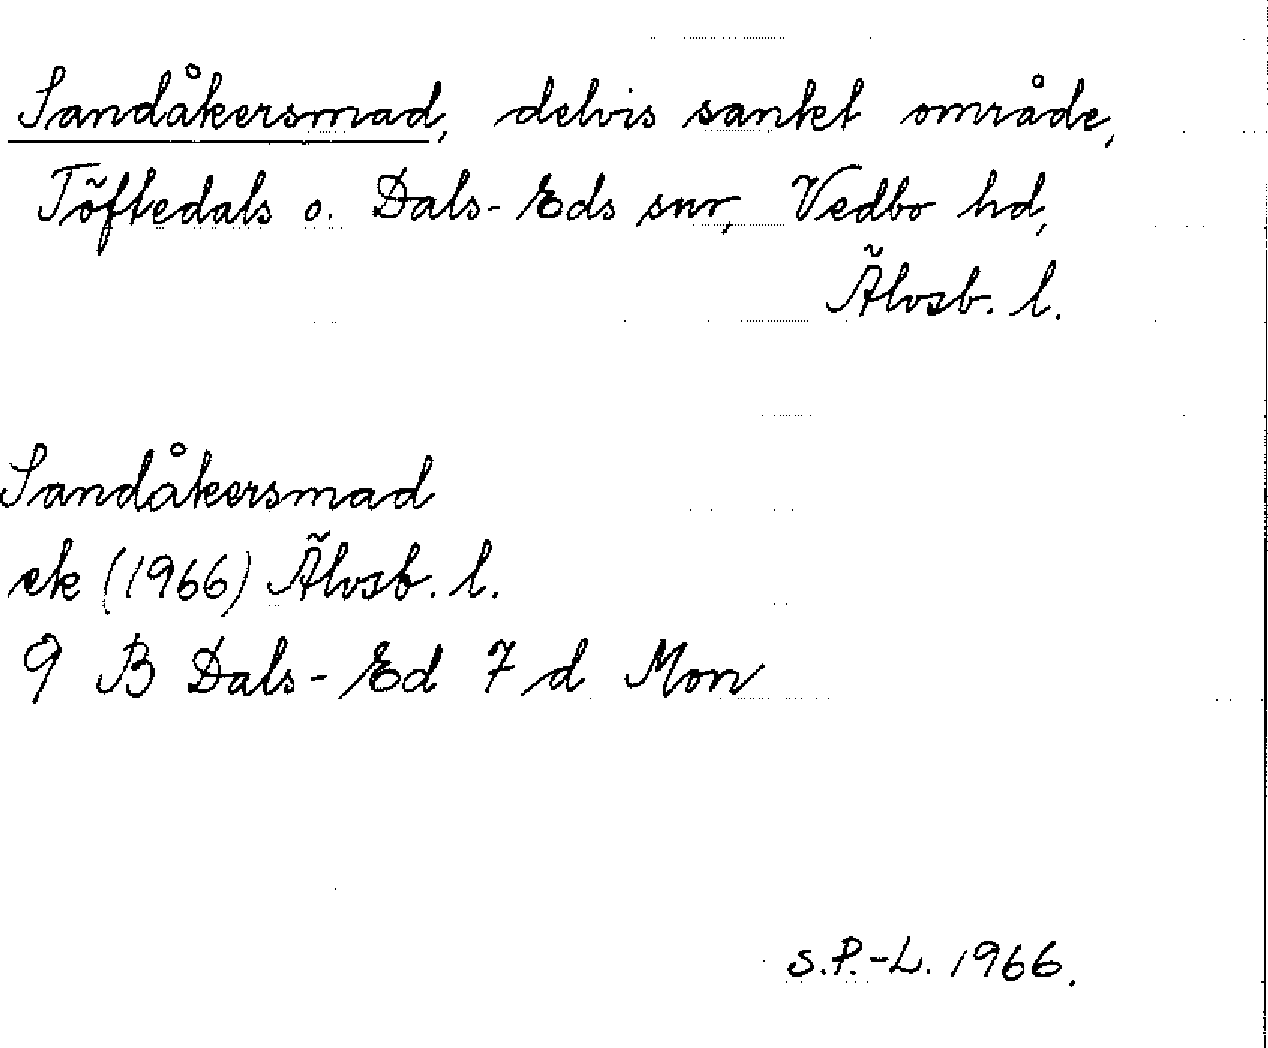 Sandåkersmad, delvis sankt område,
Töftedals o. Dals-Eds snr, Vedbo hd,
Älvsb. l.
Sandåkersmad
ek (1966) Älvsb. l.
9 B Dals-Ed 7 d Mon
S.P.-L. 1966.